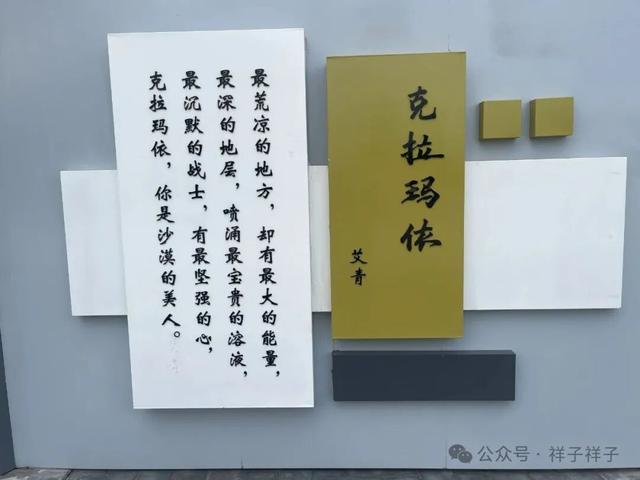 克拉玛依
艾青
最荒凉的地方，却有最大的能量，
最深的地层，喷涌最宝贵的溶液，
最沉默的战士，有最坚强的心，
克拉玛依，你是沙漠的美人。
公众号·祥子祥子